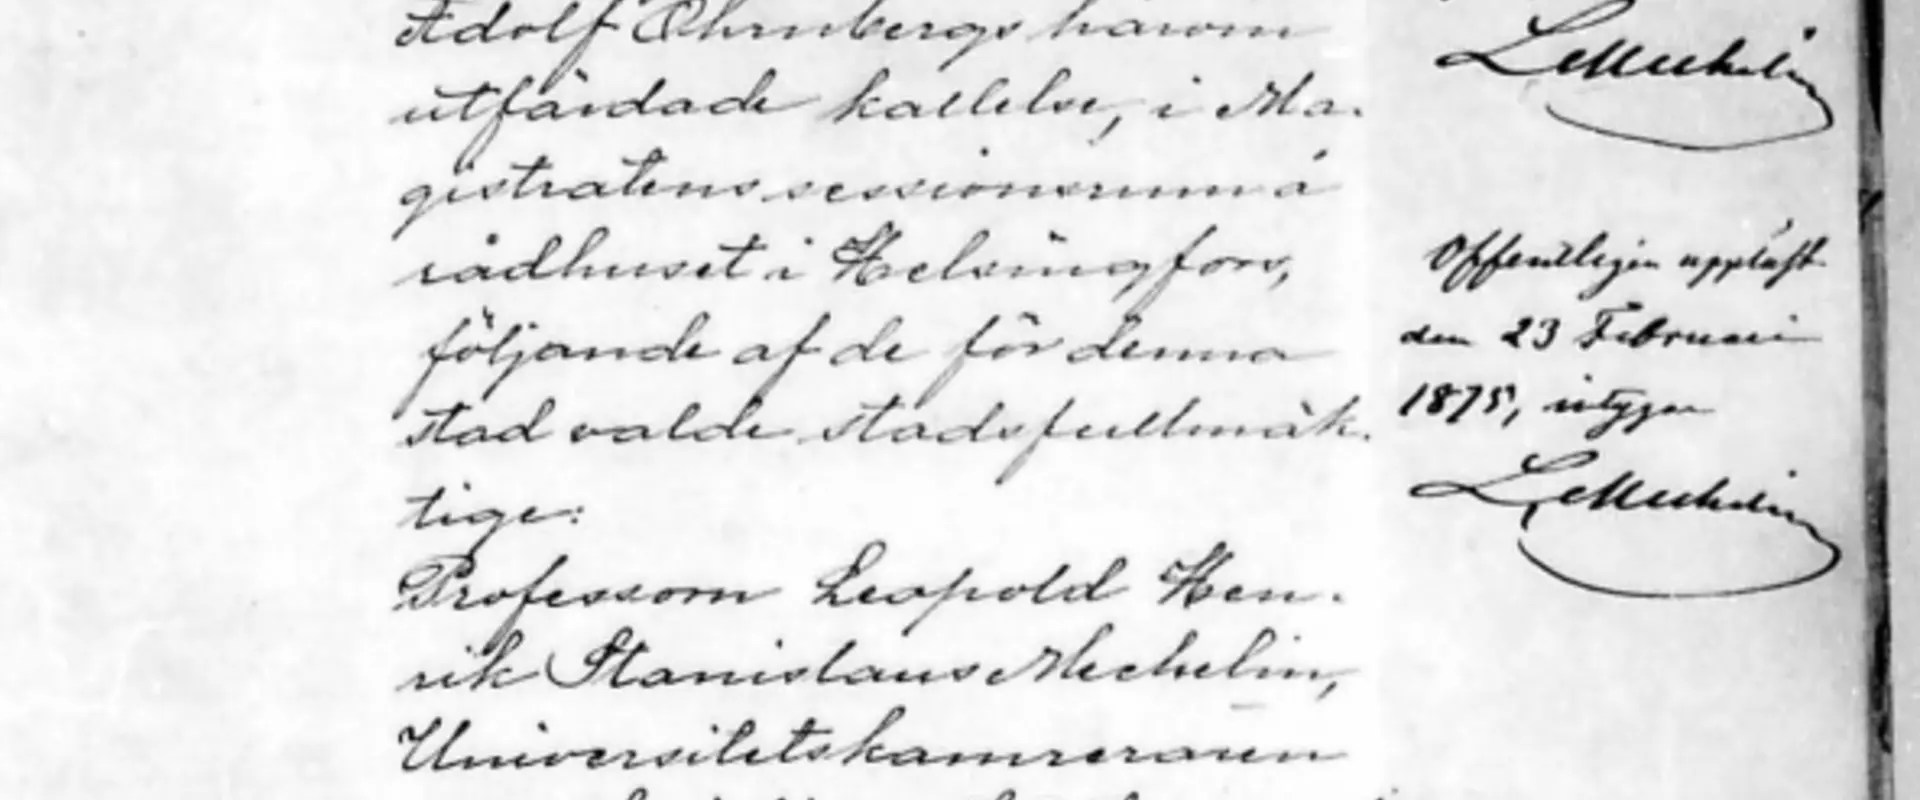 Adolf Öhrnbergs härom
utfärdade kallelse, i Ma-
gistratens sessionsrum å
rådhuset i Helsingfors,
följande af de för denna
stad valde stadsfullmäk-
tige:
Professorn Leopold Hen-
rik Stanislaus Mechelin,
Universitetskamreraren
LMechelin
Offentligen uppläst
den 23 Februari
1875, intygar
LMechelin